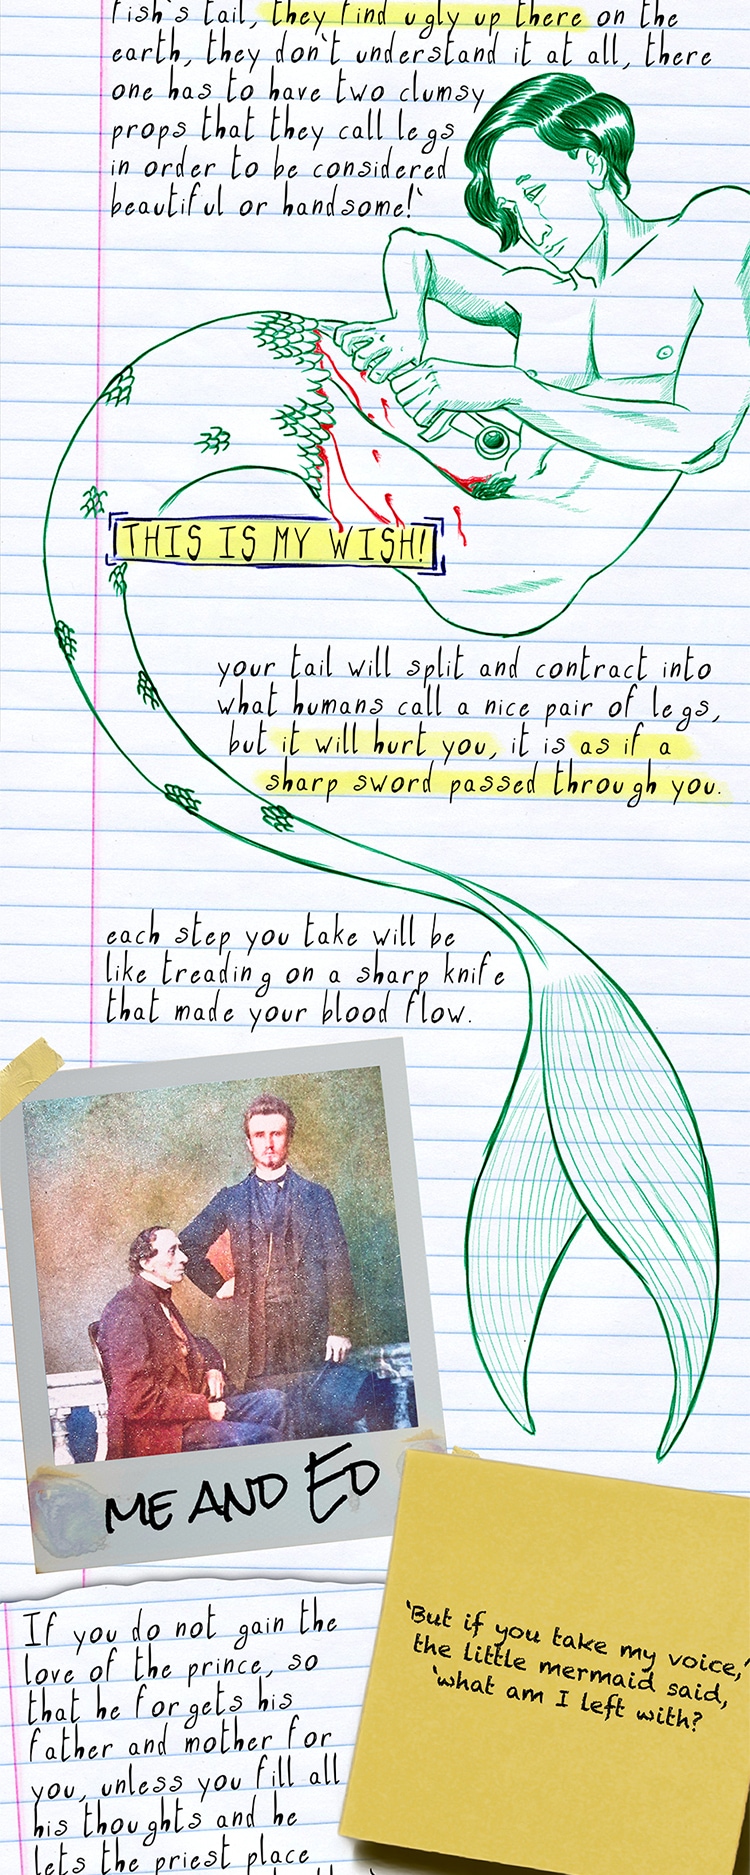 fish's tail, they find ugly up there on the
earth, they don't understand it at all, there
one has to have two clumsy
props that they call legs
in order to be considered
beautiful or handsome!'
THIS IS MY WISH!
your tail will split and contract into
what humans call a nice pair of legs,
but it will hurt you, it is as if a
sharp sword passed through you.
each step you take will be
like treading on a sharp knife
that made your blood flow.
ME AND ED
If you do not gain the
love of the prince, so
that he forgets his
father and mother for
you, unless you fill all
his thoughts and he
lets the priest place
'But if you take my voice,'
the little mermaid said,
'what am I left with?